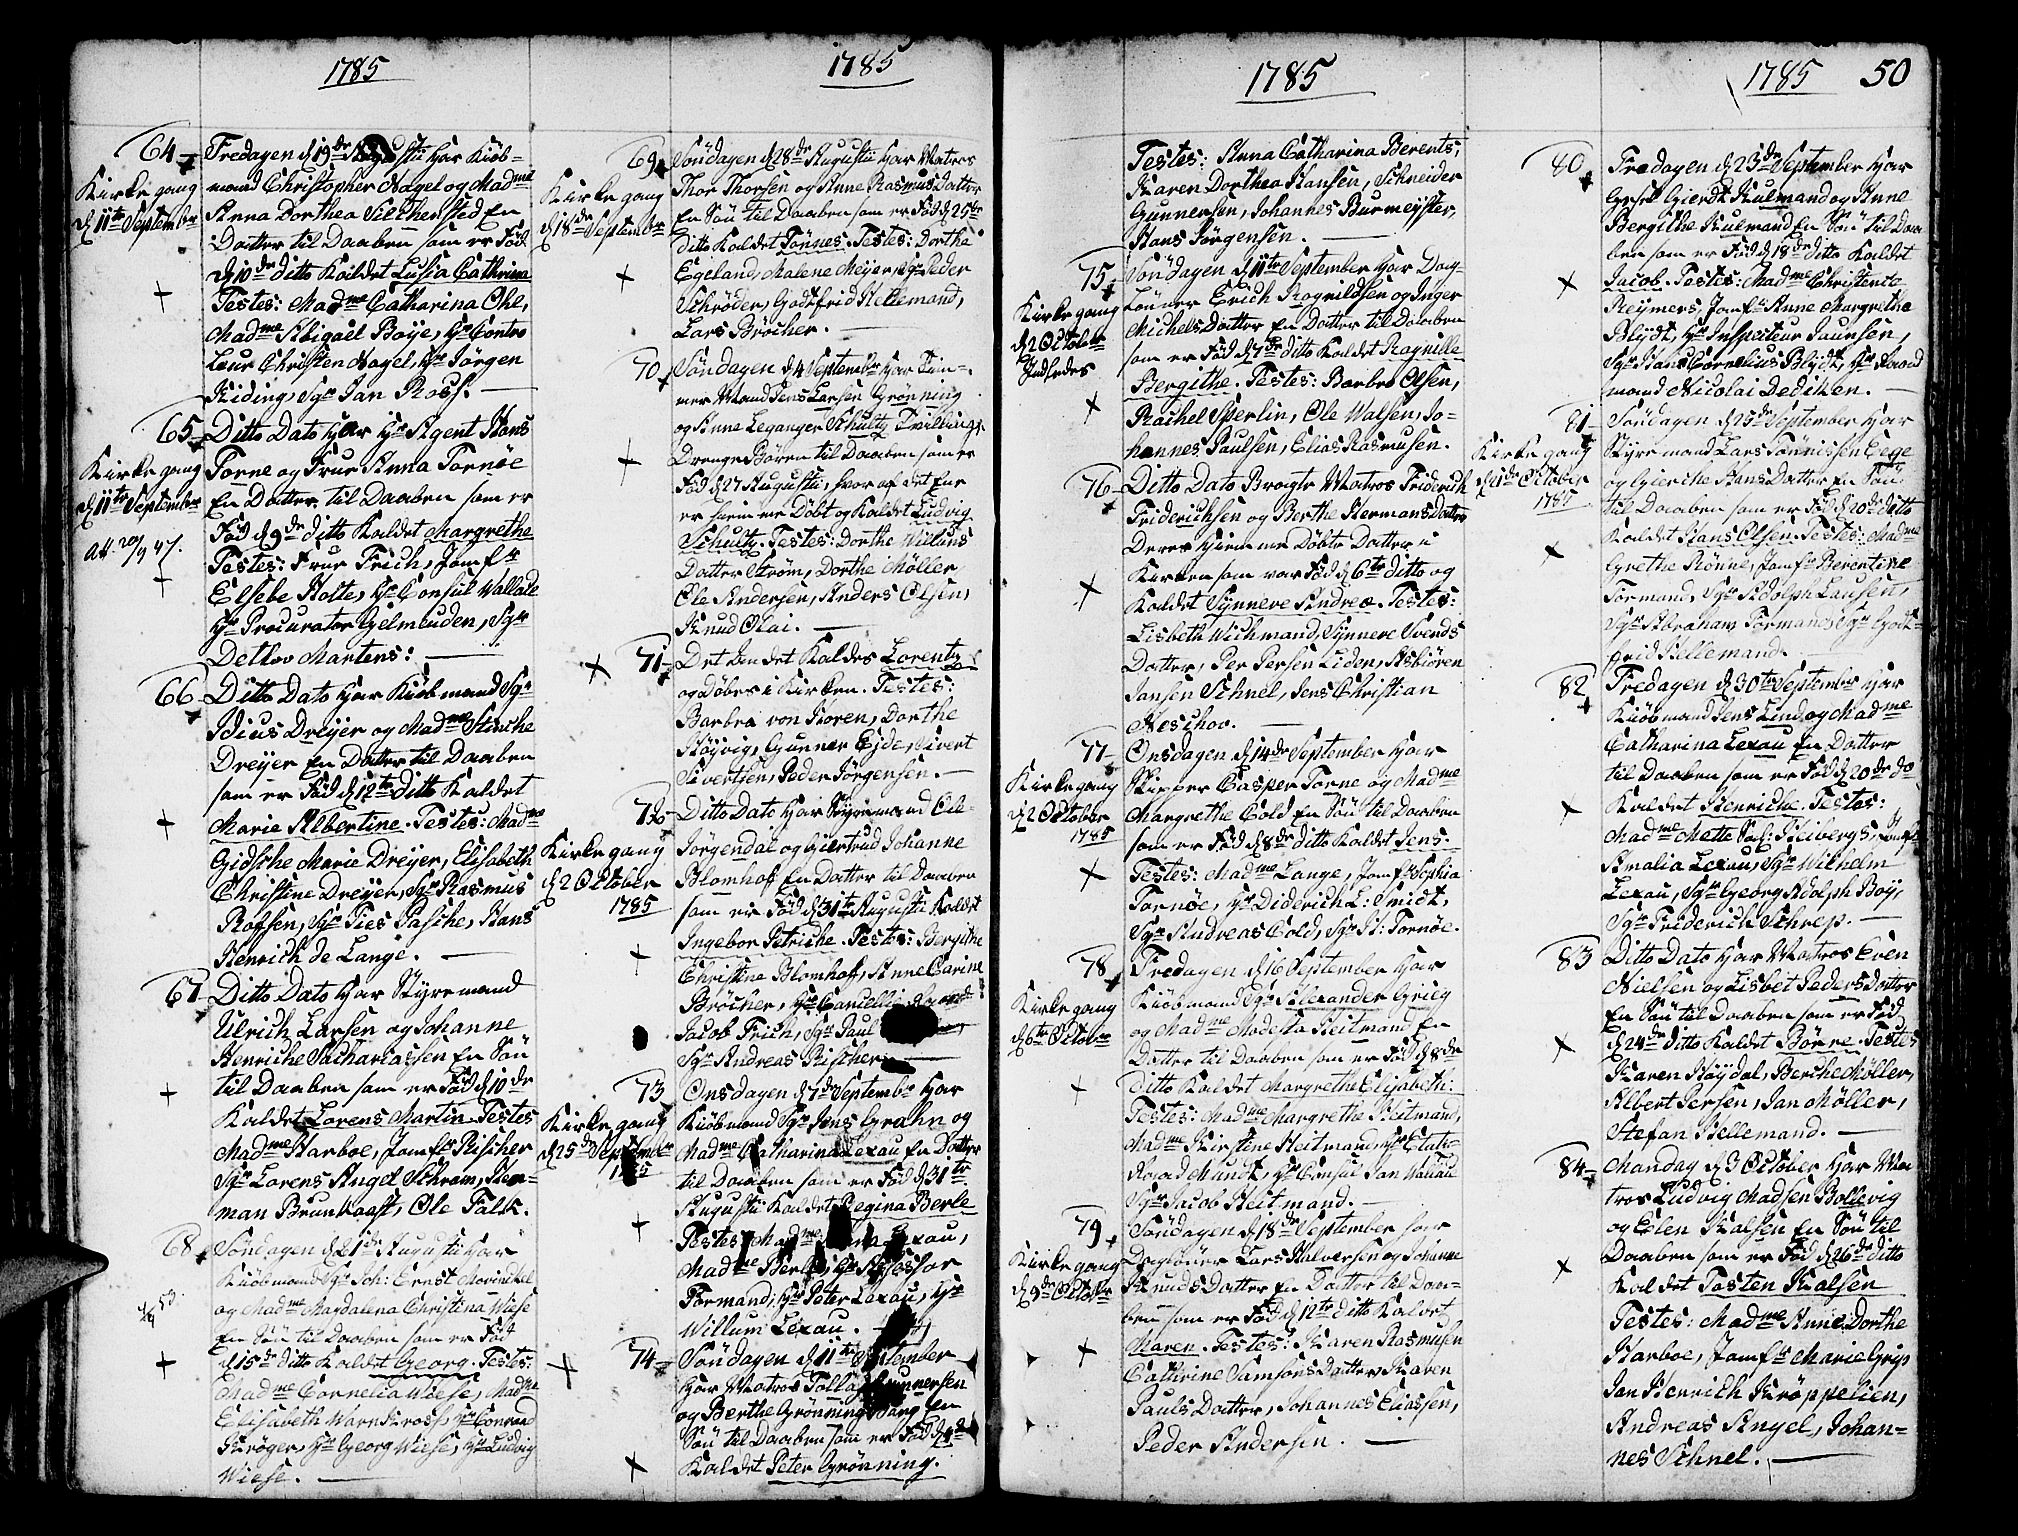 1785
64
Kirkegang
d 11te Septembr
Fredagen d 19de Augustii har Kiøb-
mand Christopher Nagel og Madme
Anna Dorthea Silchensted En
Datter til Daaben som er Fød
d 10de ditto Kaldet Lusia Cathrina
Testes: Madme Catharina Ohe,
Madme Abigael Boÿe, Hr Contro
Leur Christen Nagel, Hr Jørgen
Kiding, Sgr Jan Ross.
65
Kirkegang
d 11te Septembr
Att. 20/9 47.
Ditto Dato har Hr Agent Hans
Torne og Frue Anna Tornøe
En Datter til Daaben som er
Fød d 9de ditto Kaldet Margrethe
Testes: Frue Frich, Jomfr
Elsebe Holte, Hr Consul Wallace
Hr Procurator Gelmeuden, Sgr
Detlov Martens:
66
Ditto Dato har Kiøbmand Sgr
Idius Dreÿer og Madme Stinche
Dreÿer En Datter til Daaben
som er Fød d 12te ditto Kaldet
Marie Albertine. Testes: Madme
Gidsche Marie Dreÿer, Elisabeth
Christine Dreÿer, Sgr Rasmus
Rolfsen, Sgr Ties Pasche, Hans
Henrich de Lange.
67
Ditto Dato har Stÿremand
Ulrich Larsen og Johanne
Henriche Sachariassen En Søn
til Daaben som er Fød d 10de
Kaldet Lorens Martin. Testes
Madme Harboe, Jomfr Rischer
Sgr Lorens Angel Schram, Her-
man Brunkaast, Ole Falk.
68
Søndagen d 21de Augustii har
Kiøbmand Sgr Joh: Ernst Movinckel
og Madme Magdalena Christina Wiese
En Søn til Daaben som er Fød
d 15de ditto Kaldet Georg. Testes:
Madme Cornelia Wiese, Madme
Elisabeth Warnkross, Hr Conrad
Krøger, Hr Georg Wiese, Hr Ludvig
Wiese.
1785
69
Kirkegang
d 18de Septembr
Søndagen d 28de Augustii har Matros
Thor Thorsen og Anne Rasmus Datter
En Søn til Daaben som er Fød d 25de
ditto Kaldet Tønnes. Testes: Dorthe
Egeland, Malene Meÿer, Sgr Peder
Schrøder, Godtfrid Hellemand,
Lars Brøcher.
70
Søndagen d 4 Septembr har Tim-
mer Mand Jens Larsen Grønning
og Anne Leganger Schultz Tvillings
Drenge Børen til Daaben som er
Fød d 27 Augustii, hvor af det Ene
er hiemme Døbt og Kaldet Ludvig
Schultz. Testes: Dorthe Wilums
Datter Strøm, Dorthe Møller
Ole Andersen, Anders Olsen,
Knud Olai.
71
Det Andet Kaldes Lorentz
og Døbes i Kirken. Testes:
Barbra von Horen, Dorthe
Høÿvig, Gunner Eide, Sivert
Sivertsen, Peder Jørgensen.
72
Kirkegang
d 2 October
1785
Ditto Dato har Styremand Ole
Jørgendal og Giertrud Johanne
Blomhoff En Datter til Daaben
som er Fød d 31te Augustii Kaldet
Ingebor Petriche. Testes: Bergithe
Christina Blomhoff, Anne Carine
Brøcher, Hr Cancellie Raad
Jacob Frich, Sgr Paul
Sgr Andreas Rischer
73
Kirkegang
d 25de Septembr
1785
Onsdagen d 7de Septembr har
Kiøbmand Sgr Jens Grahn og
Madme Catharina Lexau En Datter
til Daaben som er Fød d 31te
Augustii Kaldet Regina Berle
Testes: Madme Lexau,
Madme Berle, Hr Assessor
Formand, Hr Peter Lexau, Hr
Willum Lexau.
74
Søndagen d 11te September
har Matros Tollag Gunnersen
og Berthe Grønning Barg En
Søn til Daaben som er Fød d
Kaldet Peter Grønning.
1785
Testes: Anna Catharina Berents,
Karen Dorthea Hansen, Schneider
Gunnersen, Johannes Burmeÿster,
Hans Jørgensen.
75
Kirkegang
d 2 October
Indledes
Søndagen d 11te September har Dag-
Lønner Erich Ragvildsen og Inger
Michels Datter En Datter til Daaben
som er Fød d 7de ditto Kaldet Ragnille
Bergithe. Testes: Barbro Olsen,
Rachel Sperlin, Ole Walsen, Jo-
hannes Paulsen, Elias Rasmusen.
76
Ditto Dato Bragte Matros Friderich
Friderichsen og Berthe Hermans Datter
Deres hiemme Døbte Datter i
Kirken som var Fød d 6te ditto og
Kaldet Synneve Andrea. Testes:
Lisbeth Wichmand, Synneve Svends
Datter, Per Persen Liden, Asbiøren
Jansen Schnel, Jens Christian
Neschov.
77
Kirkegang
d 2 October
1785
Onsdagen d 14de September har
Skipper Casper Torne og Madme
Margrethe Cold En Søn til Daaben
som er Fød d 8de ditto Kaldet Jens.
Testes: Madme Lange, Jomfr Sophia
Tornøe, Hr Diderich L: Smidt,
Sgr Andreas Cold, Sgr H: Tornøe.
78
Kirkegang
d 6te Octobr
Fredagen d 16 September har
Kiøbmand Sgr Alexander Grieg
og Madme Modesta Heitmand En
Datter til Daaben som er Fød d 8de
ditto Kaldet Margrethe Elisabeth.
Testes: Madme Margretha Heitmand,
Madme Kirstine Heitmand, Hr Etats-
Raad Mundt, Hr Consul Jan Wallace
Sgr Jacob Heitmand.
79
Kirkegang
d 9de Octobr
Søndagen d 18de September har
Daglønner Lars Halversen og Johanne
Knuds Datter En Datter til Daa-
ben som er Fød d 12te ditto Kaldet
Maren. Testes: Karen Rasmusen
Cathrine Samsons Datter, Karen
Pauls Datter, Johannes Eliassen,
Peder Andersen.
1785 50
80
Fredagen d 23de September har
Gesel Gierdt Kulmand og Anne
Bergithe Kulmand En Søn til Daa-
ben som er Fød d 18de ditto Kaldet
Jacob. Testes: Madme Christence
Reÿmers, Jomfr Anne Margrethe
Blÿdt, Hr Inspecteur Paulsen,
Sgr Hans Cornelius Blÿdt, Hr Raad
mand Nicolai Dedichen.
81
Kirkegang
d 21de October
1785
Søndagen d 25de September har
Stÿremand Lars Tønnissen Eege
og Gierche Hans Datter En Søn
til Daaben som er Fød d 20de ditto
Kaldet Hans Olsen. Testes: Madme
Grethe Rønne, Jomfr Berentine
Formand, Sgr Adolph Lausen,
Sgr Abraham Formand, Sgr Godt-
frid Hellemand.
82
Fredagen d 30te September har
Kiøbmand Jens Lind og Madme
Catharina Lexau En Datter
til Daaben som er Fød d 20de do
Kaldet Henriche. Testes:
Madme Mette Sal: Heibergs, Jomfr
Amalia Lexau, Sgr Wilhelm
Lexau, Sgr Georg Adolph Boÿ,
Sgr Friderich Schrep.
83
Ditto Dato har Matros Even
Nielsen og Lisbet Peders Datter
En Søn til Daaben som er Fød
d 24de ditto Kaldet Børre. Testes
Karen Høÿdal, Berthe Møller,
Albert Jersen, Jan Møller,
Stefan Hellemand.
84
Mandag d 3 October har Ma-
tros Ludvig Madsen Bollevig
og Elen Kalsen En Søn til
Daaben som er Fød d 26de ditto
Kaldet Tosten Kalsen
Testes: Madme Anne Dorthe
Harboe, Jomfr Marie Grip
Jan Henrich Krøppelien,
Andreas Angel, Johan-
nes Schnel.